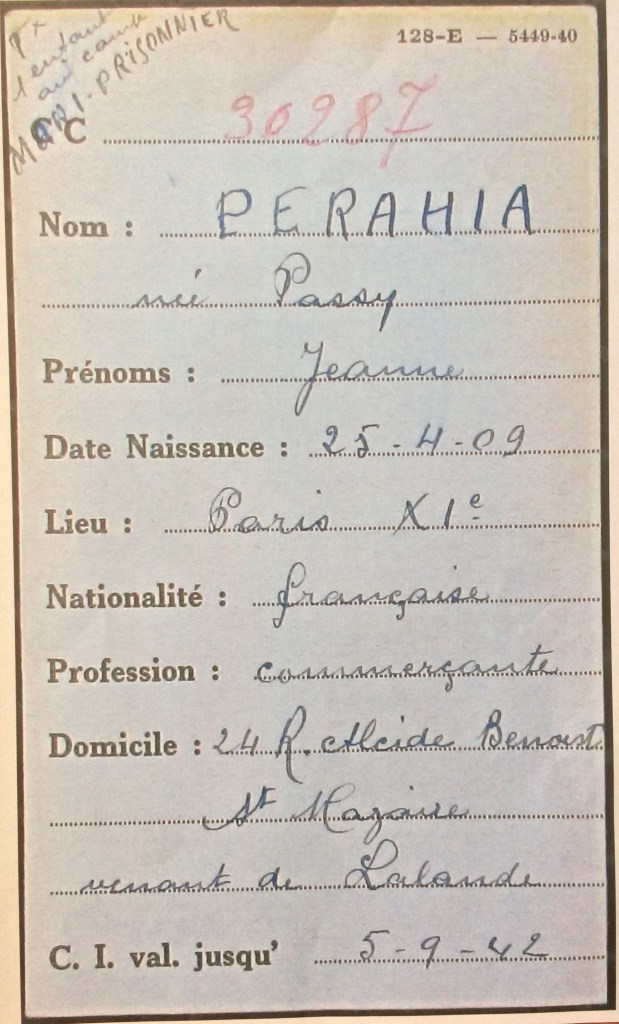 1 enfant
au camp
MARI-PRISONNIER
128-E — 5449-40
C 30287
Nom : PERAHIA
née Passy
Prénoms : Jeanne
Date Naissance : 25-4-09
Lieu : Paris XIe
Nationalité : française
Profession : commerçante
Domicile : 24 R. Alcide Benoist
St Nazaire
venant de Lalande
C. I. val. jusqu' 5-9-42